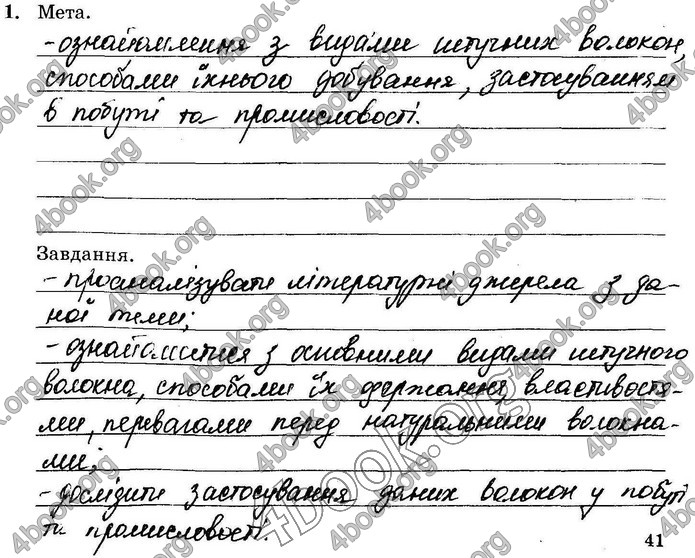 1. Мета.
- ознайомлення з видами штучних волокон,
способами їхнього добування, застосуванням
в побуті та промисловості.
Завдання.
- проаналізувати літературні джерела з да-
ної теми;
- ознайомитися з основними видами штучного
волокна, способами їх держання, властивостя-
ми, перевагами перед натуральними волокна-
ми;
- дослідити застосування даних волокон у побуті
та промисловості.
41
4book.org